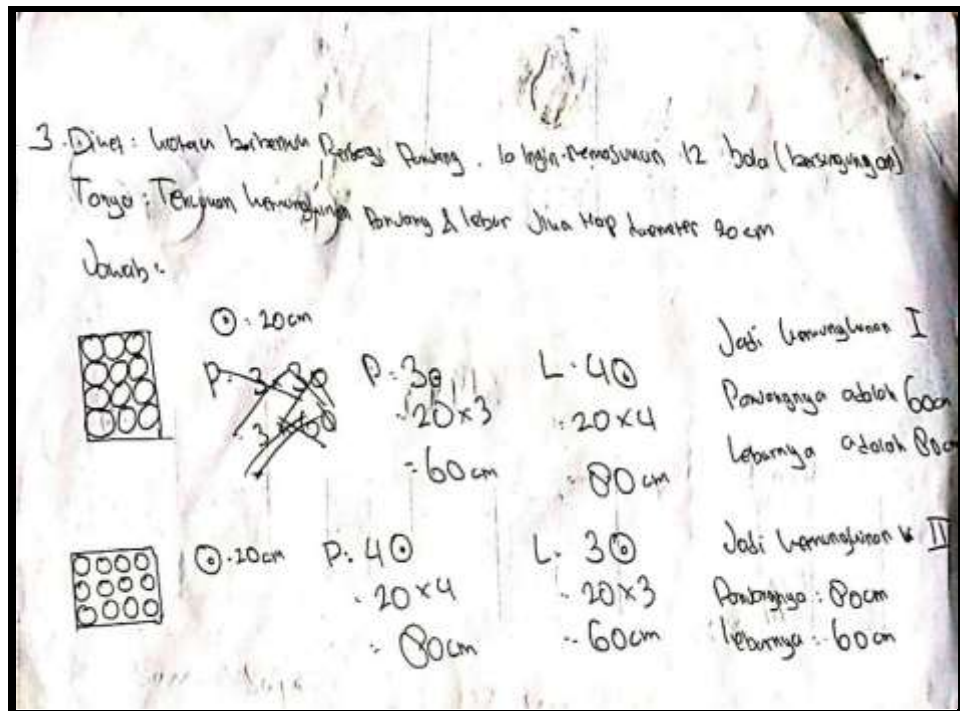 3. Diket : kotak berbentuk Persegi Panjang . Ia Ingin memasukan 12 bola (bersinggungan)
Tanya : Tentukan kemungkinan Panjang & lebar Jika tiap diameter 20 cm
Jawab :
⊙ : 20 cm
P = 3⊙
= 20 × 3
= 60 cm
L = 4⊙
= 20 × 4
= 80 cm
Jadi kemungkinan I
Panjangnya adalah 60cm
lebarnya adalah 80cm
⊙ = 20 cm
P = 4⊙
= 20 × 4
= 80 cm
L = 3⊙
= 20 × 3
= 60 cm
Jadi kemungkinan II
Panjangnya : 80cm
lebarnya : 60 cm